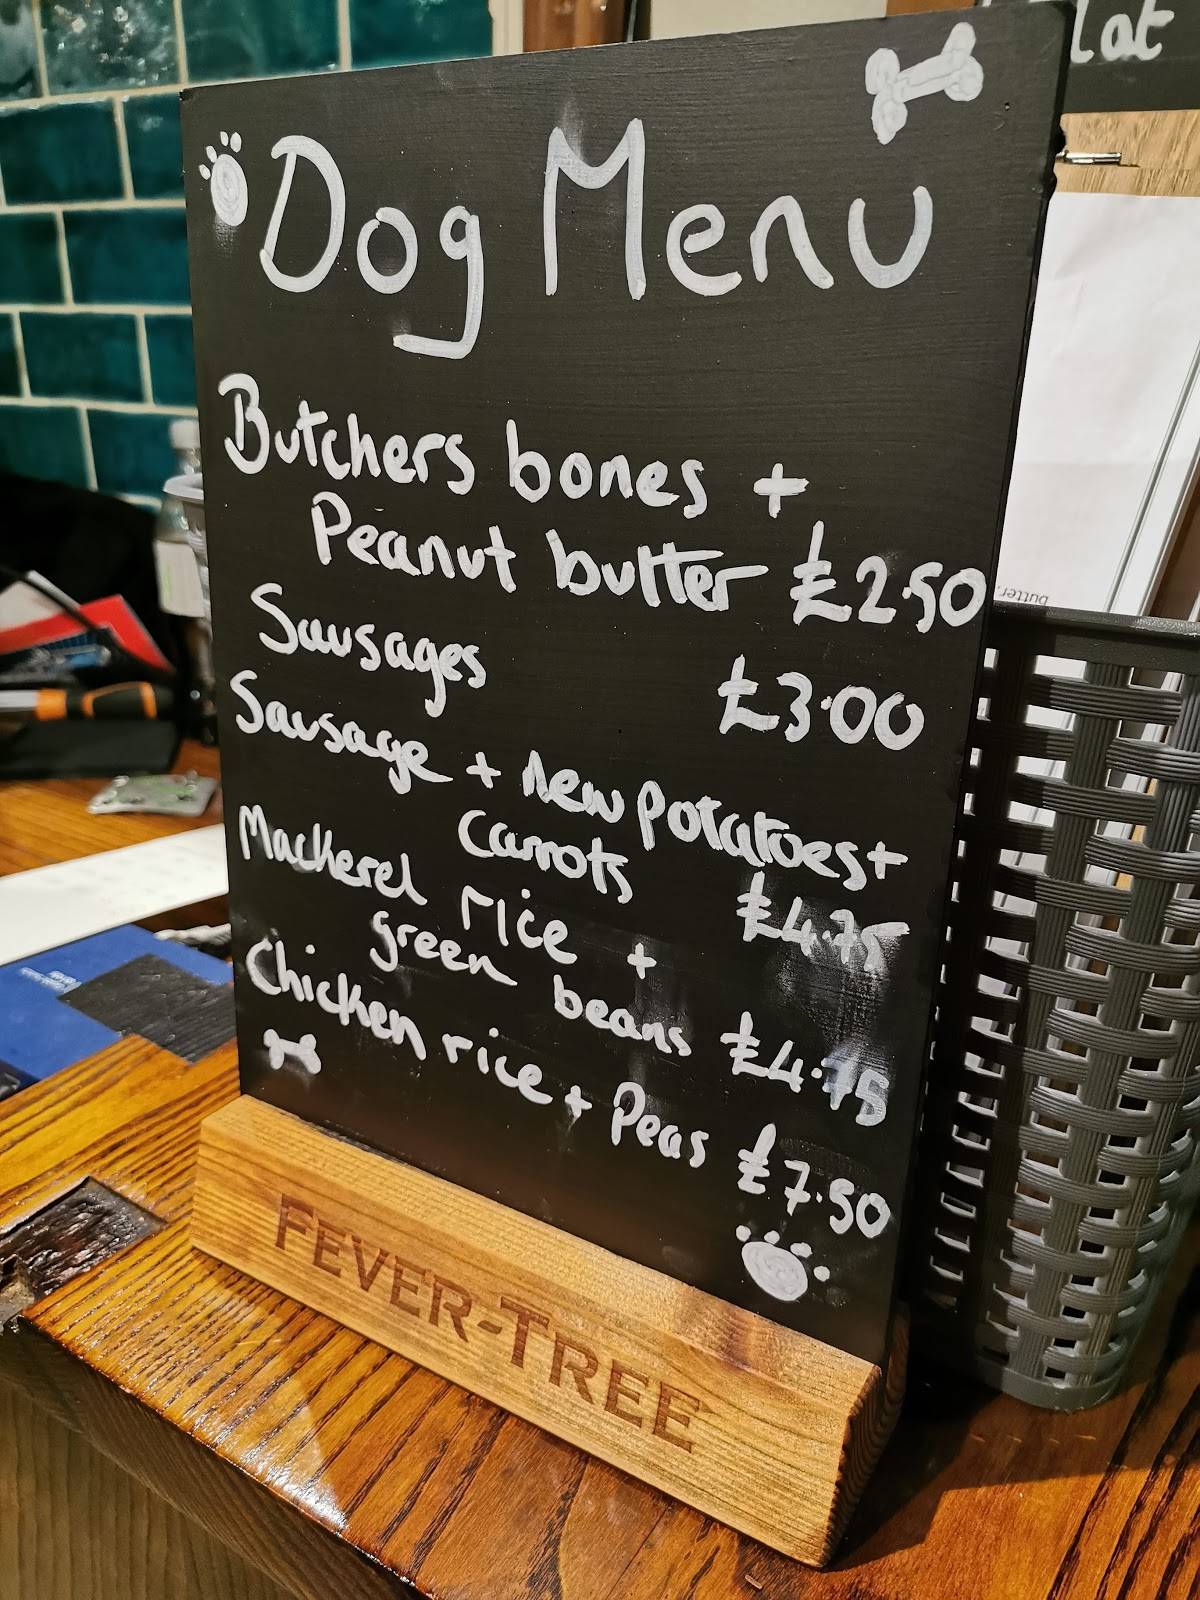 Dog Menu
Butchers bones +
Peanut butter £2.50
Sausages £3.00
Sausage + new potatoes +
carrots £4.75
Mackerel rice +
green beans £4.75
Chicken rice + Peas £7.50
FEVER-TREE
butter,